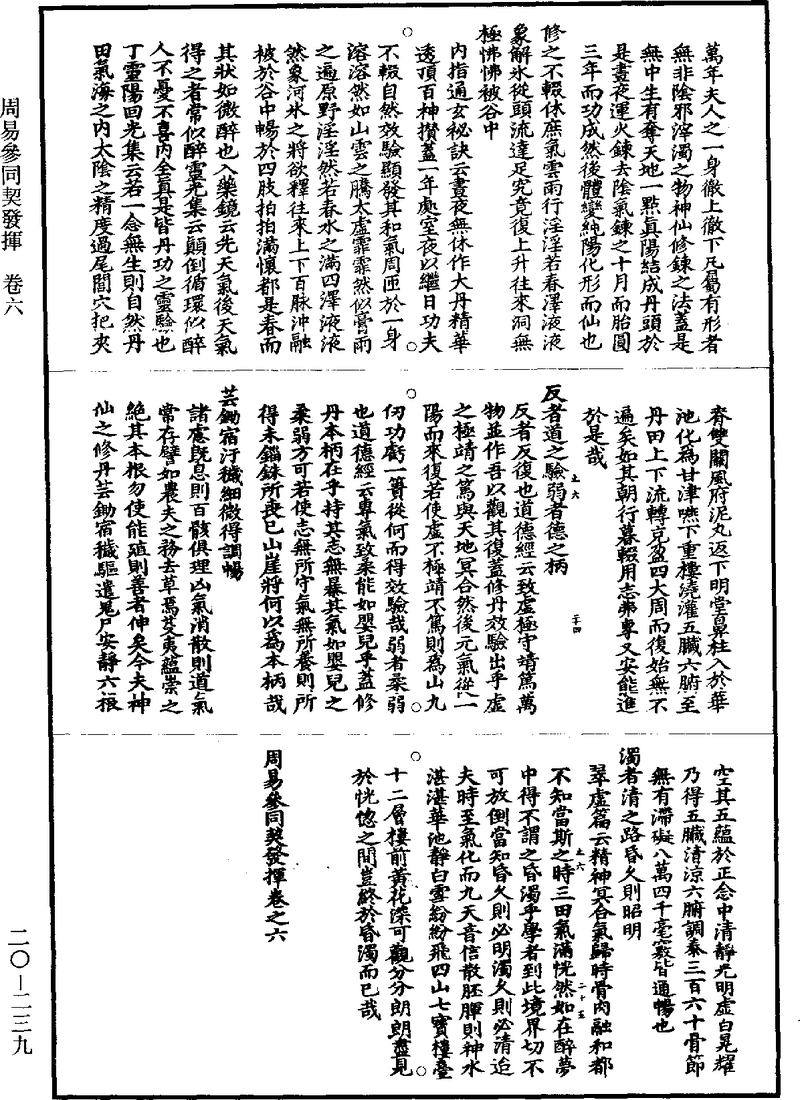 周易參同契發揮 卷六
二〇—二三九
萬年夫人之一身徹上徹下凡屬有形者
無非陰邪滓濁之物神仙修鍊之法蓋是
無中生有奪天地一點真陽結成丹頭於
是晝夜運火鍊去陰氣鍊之十月而胎圓
三年而功成然後體變純陽化形而仙也
修之不輟休庶氣雲雨行淫淫若春澤液液
象解氷從頭流達足究竟復上升往來洞無
極怫怫被谷中
內指通玄秘訣云晝夜無休作大丹精華
透頂百神攢蓋一年處室夜以繼日功夫
不輟自然效驗顯發其和氣周匝於一身
溶溶然如山雲之騰太虛霏霏然似膏雨
之遍原野淫淫然若春水之滿四澤液液
然象河氷之將欲釋往來上下百脉沖融
被於谷中暢於四肢拍拍滿懷都是春而
其狀如微醉也入藥鏡云先天氣後天氣
得之者常似醉靈光集云顛倒循環似醉
人不憂不喜內全真是皆丹功之靈驗也
丁靈陽回光集云若一念無生則自然丹
田氣海之內太陰之精度過尾閭穴把夾
脊雙關風府泥丸返下明堂鼻柱入於華
池化為甘津嚥下重樓澆灌五臟六腑至
丹田上下流轉充盈四大周而復始無不
遍矣如其朝行暮輟用志弗專又安能進
於是哉
反者道之驗弱者德之柄
反者反復也道德經云致虛極守靖篤萬
物並作吾以觀其復蓋修丹效驗出乎虛
之極靖之篤與天地冥合然後元氣從一
陽而來復若使虛不極靖不篤則為山九
仞功虧一簣從何而得效驗哉弱者柔弱
也道德經云專氣致柔能如嬰兒乎蓋修
丹本柄在乎持其志無暴其氣如嬰兒之
柔弱方可若使志無所守氣無所養則所
得未錙銖所喪已山崖將何以為本柄哉
芸鋤宿汙穢細微得調暢
諸慮既息則百骸俱理凶氣消散則道氣
常存譬如農夫之務去草焉芟夷蘊崇之
絕其本根勿使能殖則善者伸矣今夫神
仙之修丹芸鋤宿穢驅遣鬼尸安靜六根
空其五蘊於正念中清靜光明虛白晃耀
乃得五臟清涼六腑調泰三百六十骨節
無有滯礙八萬四千毫竅皆通暢也
濁者清之路昏久則昭明
翠虛篇云精神冥合氣歸時骨肉融和都
不知當斯之時三田氣滿恍然如在醉夢
中得不謂之昏濁乎學者到此境界切不
可放倒當知昏久則必明濁久則必清迨
夫時至氣化而九天音信散胚腪則神水
湛湛華池靜白雪紛紛飛四山七寶樓臺
十二層樓前黃花深可觀分分朗朗盡見
於恍惚之間豈終於昏濁而已哉
周易參同契發揮卷之六